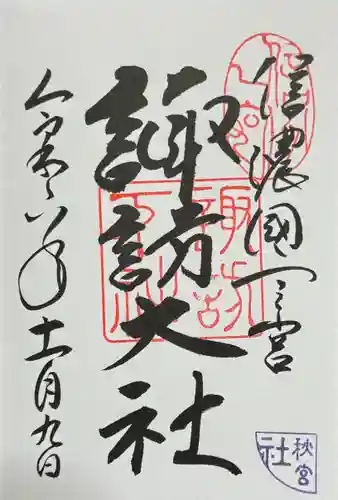 信濃國一之宮
諏訪大社
令和六年十一月九日
秋宮
社